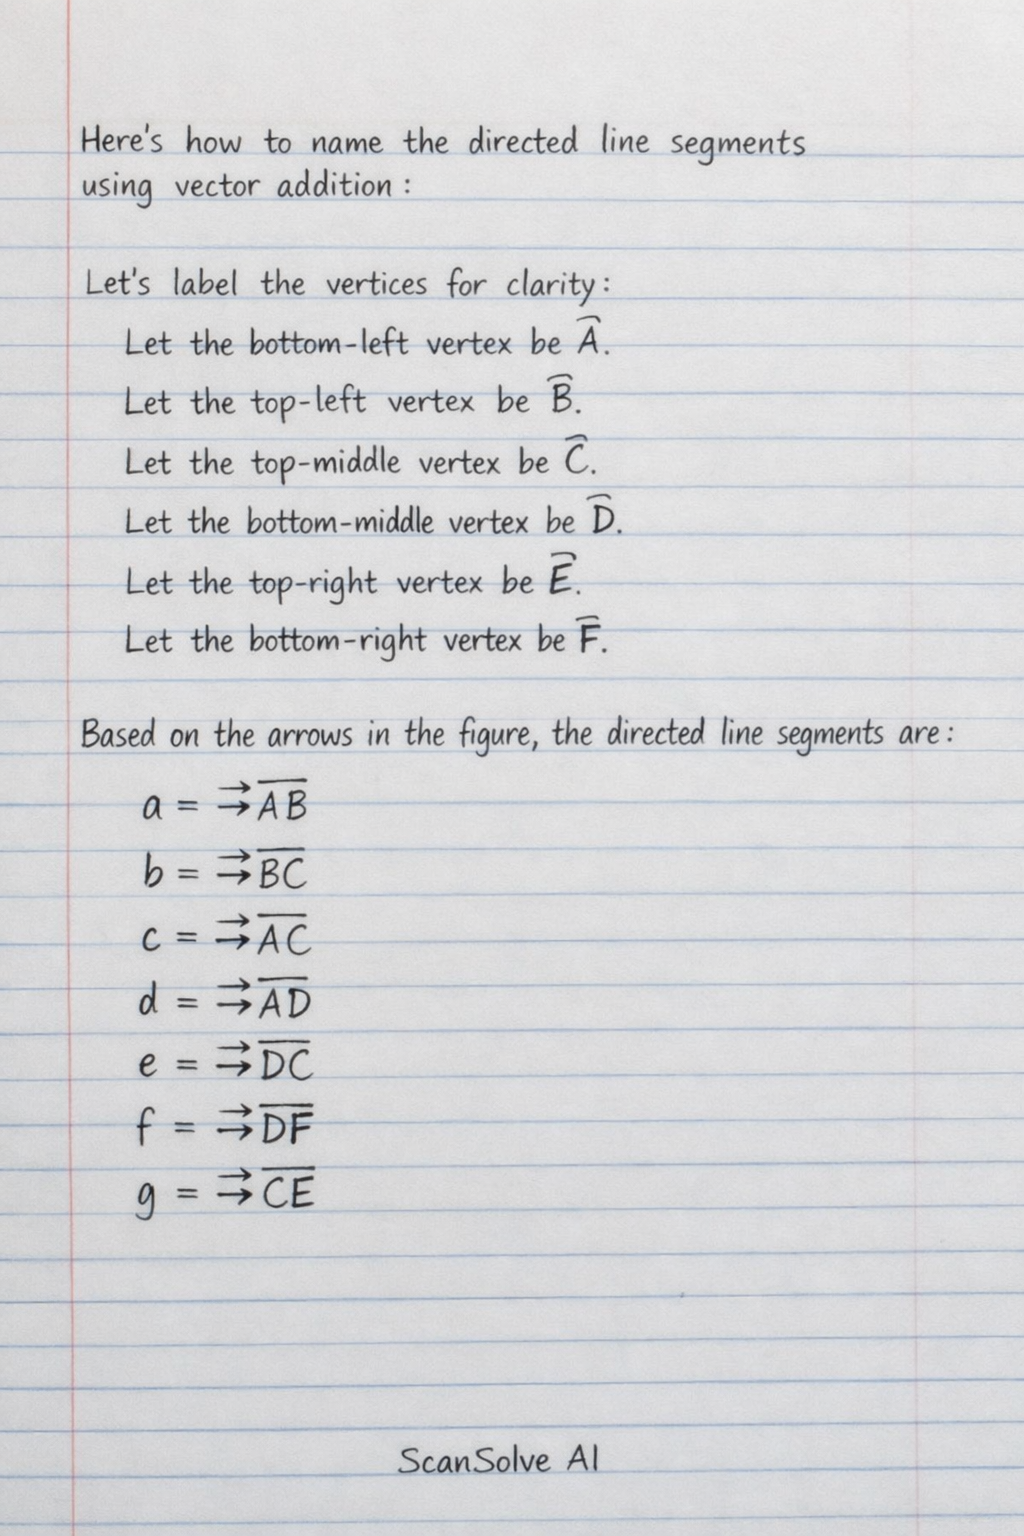 Here's how to name the directed line segments
using vector addition :
Let's label the vertices for clarity:
Let the bottom-left vertex be A̅.
Let the top-left vertex be B̅.
Let the top-middle vertex be C̅.
Let the bottom-middle vertex be D̅.
Let the top-right vertex be E̅.
Let the bottom-right vertex be F̅.
Based on the arrows in the figure, the directed line segments are:
a = ⇉ A̅B̅
b = ⇉ B̅C̅
c = ⇉ A̅C̅
d = ⇉ A̅D̅
e = ⇉ D̅C̅
f = ⇉ D̅F̅
g = ⇉ C̅E̅
ScanSolve AI